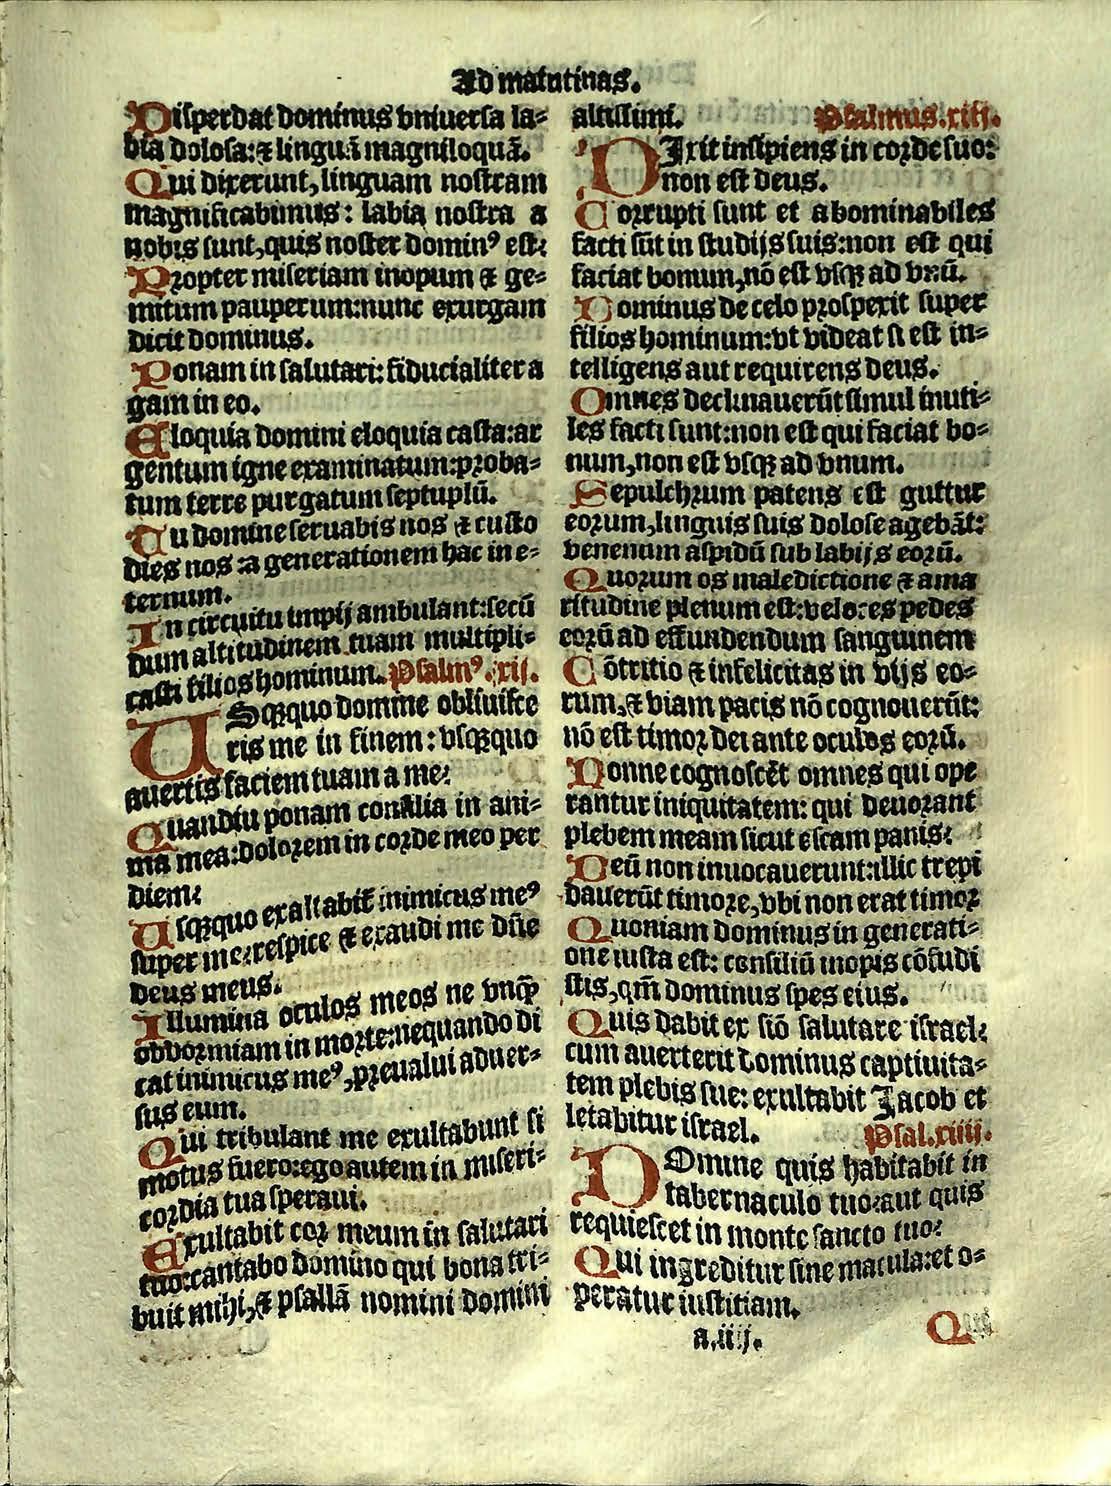 Ad matutinas.
Disperdat dominus vniuersa la-
bia dolosa: ⁊ linguā magniloquā.
Qui dixerunt, linguam nostram
magnificabimus: labia nostra a
nobis sunt, quis noster dominꝰ est?
Propter miseriam inopum ⁊ ge-
mitum pauperum: nunc exurgam
dicit dominus.
Ponam in salutari: fiducialiter a
gam in eo.
Eloquia domini eloquia casta: ar
gentum igne examinatum: proba-
tum terre purgatum septuplū.
Tu domine seruabis nos ⁊ custo
dies nos: a generatione hac in e-
ternum.
In circuitu impij ambulant: secū
dum altitudinem tuam multipli-
casti filios hominum. Psalmꝰ .xij.
VSqꝫquo domine obliuisce
ris me in finem: vsqꝫquo
auertis faciem tuam a me?
Quandiu ponam consilia in ani-
ma mea: dolorem in corde meo per
diem?
Vsqꝫquo exaltabit̄ inimicus meꝰ
super me: respice ⁊ exaudi me dn̄e
deus meus.
Illumina oculos meos ne vnqꝫ
obdormiam in morte: nequando di
cat inimicus meꝰ, preualui aduer-
sus eum.
Qui tribulant me exultabunt si
motus fuero: ego autem in miseri-
cordia tua speraui.
Exultabit cor meum in salutari
tuo: cantabo domino qui bona tri-
buit mihi, ⁊ psallā nomini domini
altissimi. Psalmus. xiij.
DIxit insipiens in corde suo:
non est deus.
Corrupti sunt et abominabiles
facti sūt in studijs suis: non est qui
faciat bonum, nō est vsqꝫ ad vnū.
Dominus de celo prosperit super
filios hominum: vt videat si est in-
telligens aut requirens deus.
Omnes declinauerūt simul inuti-
les facti sunt: non est qui faciat bo-
num, non est vsqꝫ ad vnum.
Sepulchrum patens est guttur
eorum, linguis suis dolose agebāt:
venenum aspidū sub labijs eorū.
Quorum os maledictione ⁊ ama
ritudine plenum est: veloces pedes
eorū ad effundendum sanguinem
Cōtritio ⁊ infelicitas in vijs eo-
rum, ⁊ viam pacis nō cognouerūt:
nō est timor dei ante oculos eorū.
Nonne cognoscēt omnes qui ope
rantur iniquitatem: qui deuorant
plebem meam sicut escam panis?
Deū non inuocauerunt: illic trepi
dauerūt timore, vbi non erat timor
Quoniam dominus in generati-
one iusta est: consiliū inopis cōfudi
stis, qm̄ dominus spes eius.
Quis dabit ex siō salutare israel?
cum auerterit dominus captiuita-
tem plebis sue: exultabit Jacob et
letabitur israel. Psal. xiiij.
DOmine quis habitabit in
tabernaculo tuo: aut quis
requiescet in monte sancto tuo?
Qui ingreditur sine macula: et o-
peratur iustitiam.
a.iiij. Q